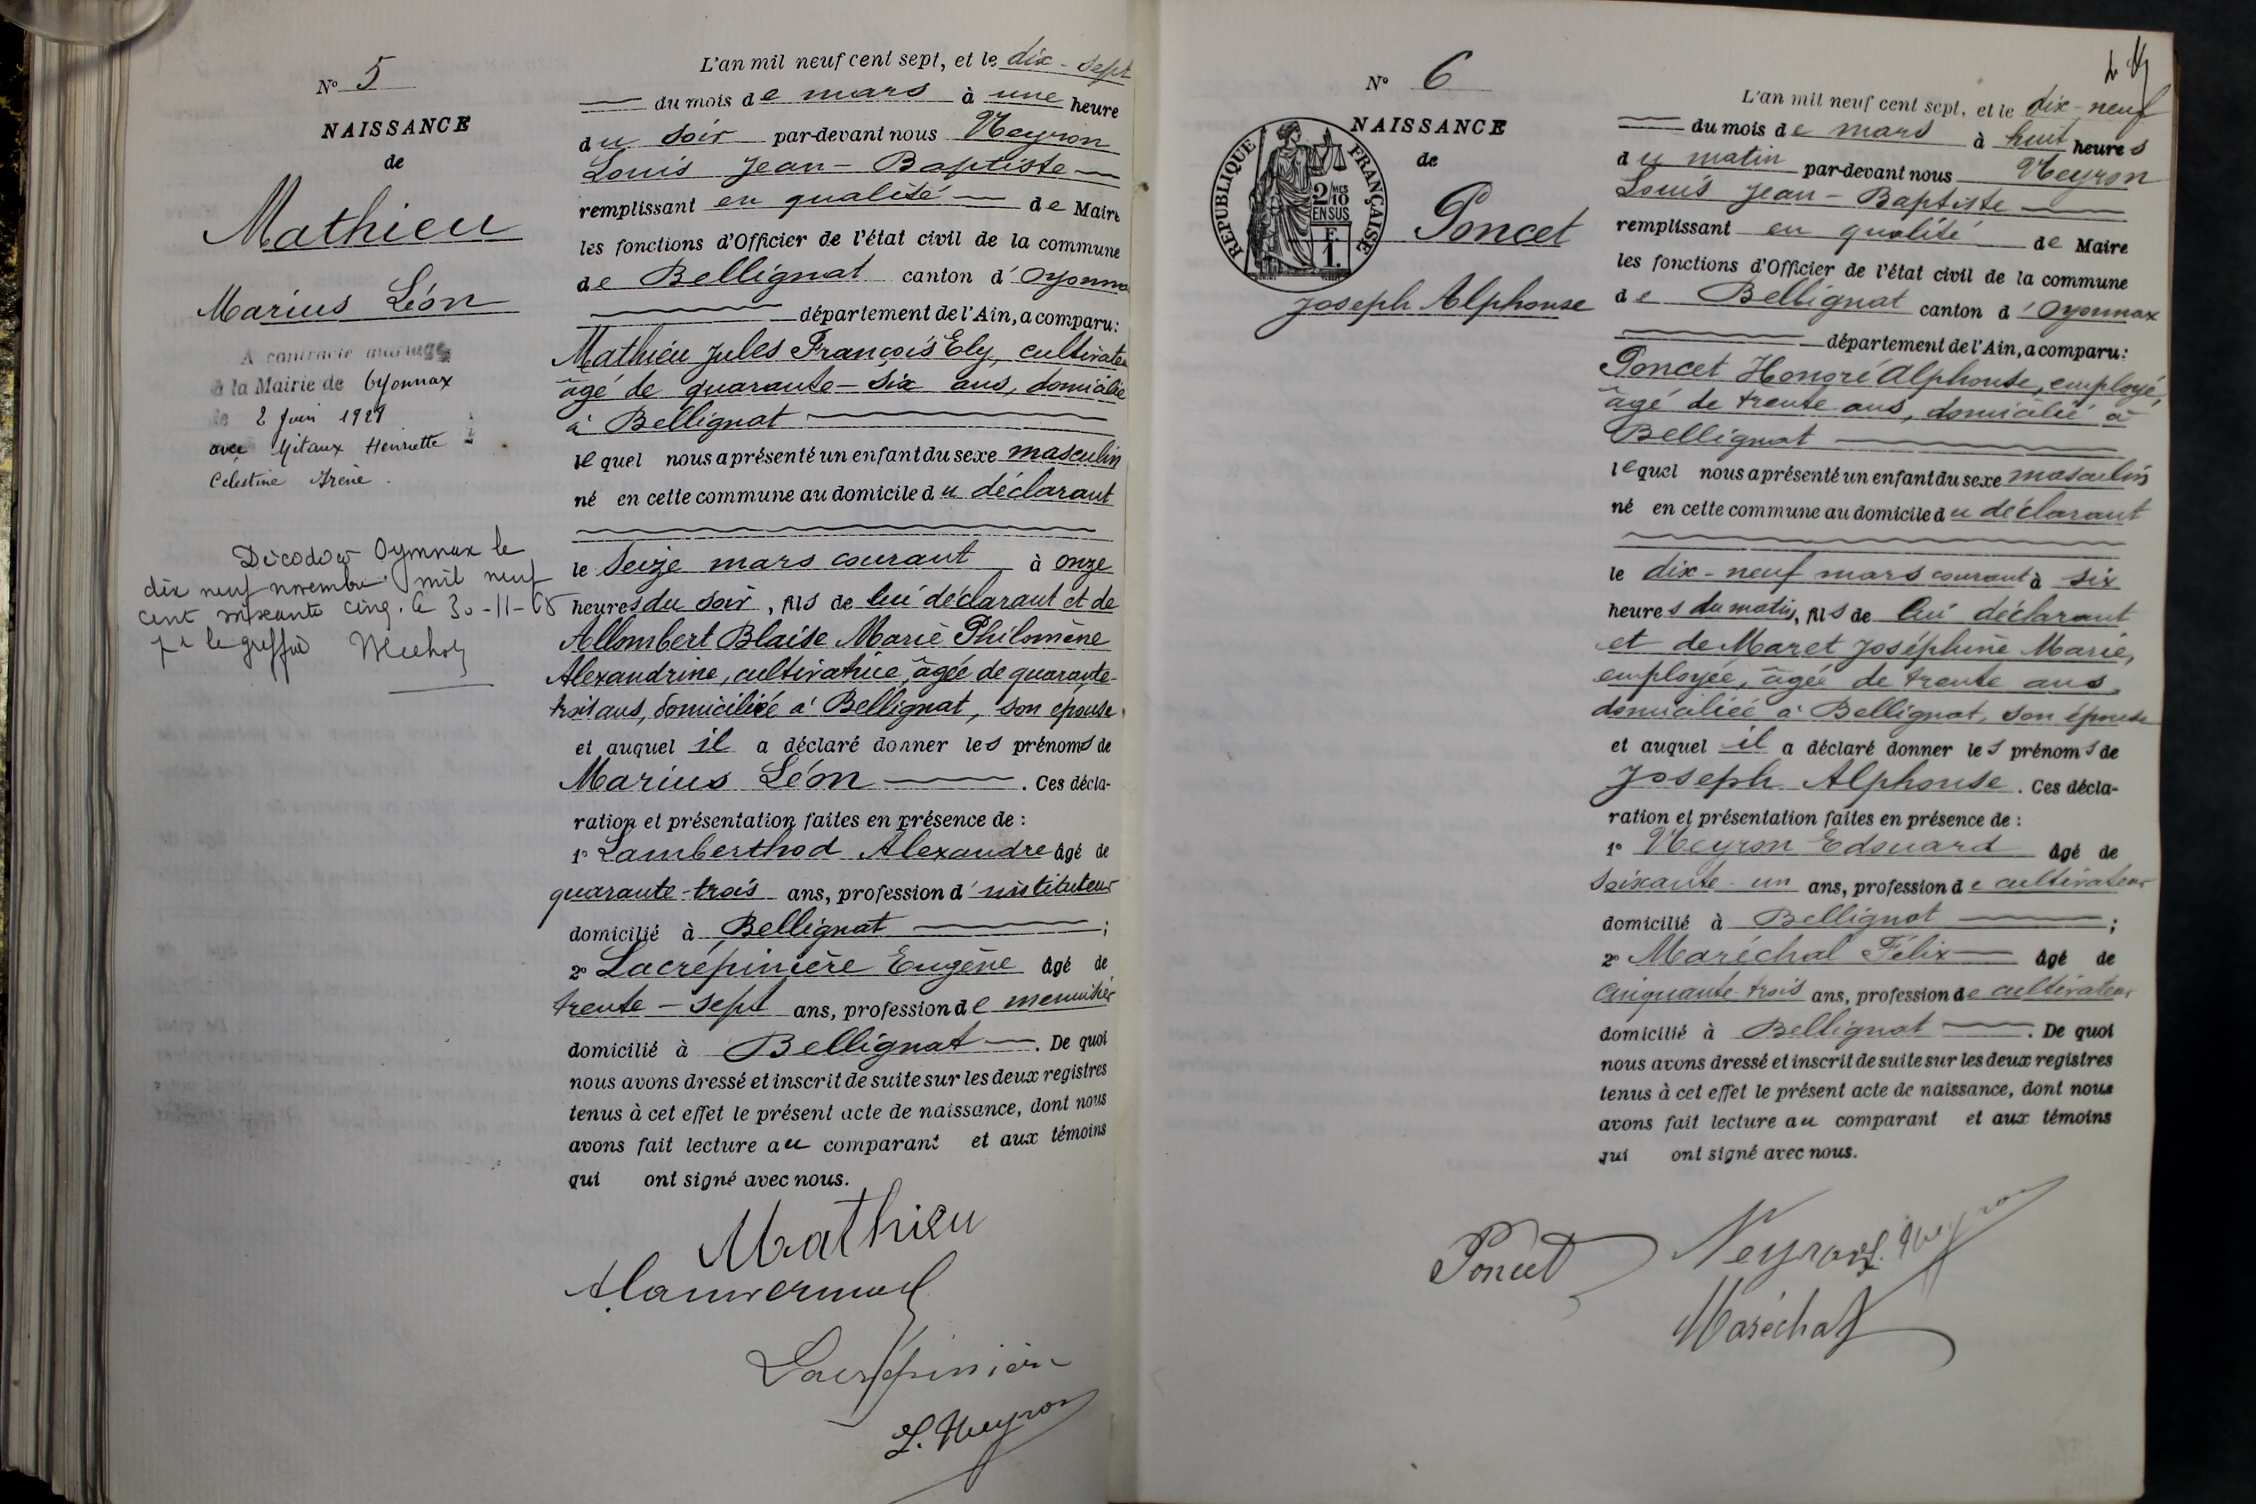 Nº 5
NAISSANCE
de
Mathieu
Marius Léon
A contracté mariage
à la Mairie de Oyonnax
le 2 Juin 1928
avec Mitaux Henriette
Célestine Irène.
Décédé à Oyonnax le
dix neuf novembre mil neuf
cent soixante cinq. Le 30-11-65
le greffier
L'an mil neuf cent sept, et le dix-sept
du mois de mars à une heure
du soir par-devant nous Neyron
Louis Jean-Baptiste
remplissant en qualité de Maire
les fonctions d'Officier de l'état civil de la commune
de Bellignat canton d'Oyonnax
département de l'Ain, a comparu:
Mathieu Jules François Ely, cultivateur
âgé de quarante-six ans, domicilié
à Bellignat
lequel nous a présenté un enfant du sexe masculin
né en cette commune au domicile du déclarant
le Seize mars courant à onze
heures du soir, fils de lui déclarant et de
Allombert Blaise Marie Philomène
Alexandrine, cultivatrice, âgée de quarante-
trois ans, domiciliée à Bellignat, son épouse
et auquel il a déclaré donner les prénoms de
Marius Léon. Ces décla-
ration et présentation faites en présence de :
1º Lamberthod Alexandre âgé de
quarante-trois ans, profession d'instituteur
domicilié à Bellignat ;
2º Lacrépinière Eugène âgé de
trente-sept ans, profession de menuisier
domicilié à Bellignat. De quoi
nous avons dressé et inscrit de suite sur les deux registres
tenus à cet effet le présent acte de naissance, dont nous
avons fait lecture au comparant et aux témoins
qui ont signé avec nous.
Mathieu
Lacrépinière
L. Neyron
Nº 6
NAISSANCE
de
RÉPUBLIQUE FRANÇAISE
2/10 MES
EN SUS
F.
1.
Poncet
Joseph Alphonse
L'an mil neuf cent sept, et le dix-neuf
du mois de mars à huit heures
du matin par-devant nous Neyron
Louis Jean-Baptiste
remplissant en qualité de Maire
les fonctions d'Officier de l'état civil de la commune
de Bellignat canton d'Oyonnax
département de l'Ain, a comparu:
Poncet Honoré Alphonse, employé,
âgé de trente ans, domicilié à
Bellignat
lequel nous a présenté un enfant du sexe masculin
né en cette commune au domicile du déclarant
le dix-neuf mars courant à six
heures du matin, fils de lui déclarant
et de Maret Joséphine Marie,
employée, âgée de trente ans,
domiciliée à Bellignat, son épouse
et auquel il a déclaré donner les prénoms de
Joseph Alphonse. Ces décla-
ration et présentation faites en présence de :
1º Neyron Edouard âgé de
soixante-un ans, profession de cultivateur
domicilié à Bellignat ;
2º Maréchal Félix âgé de
cinquante-trois ans, profession de cultivateur
domicilié à Bellignat. De quoi
nous avons dressé et inscrit de suite sur les deux registres
tenus à cet effet le présent acte de naissance, dont nous
avons fait lecture au comparant et aux témoins
qui ont signé avec nous.
Poncet Neyron L. Neyron
Maréchal